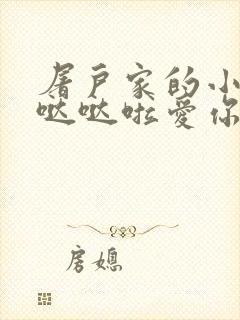 屠户家的小
哒哒啦爱你
房媳